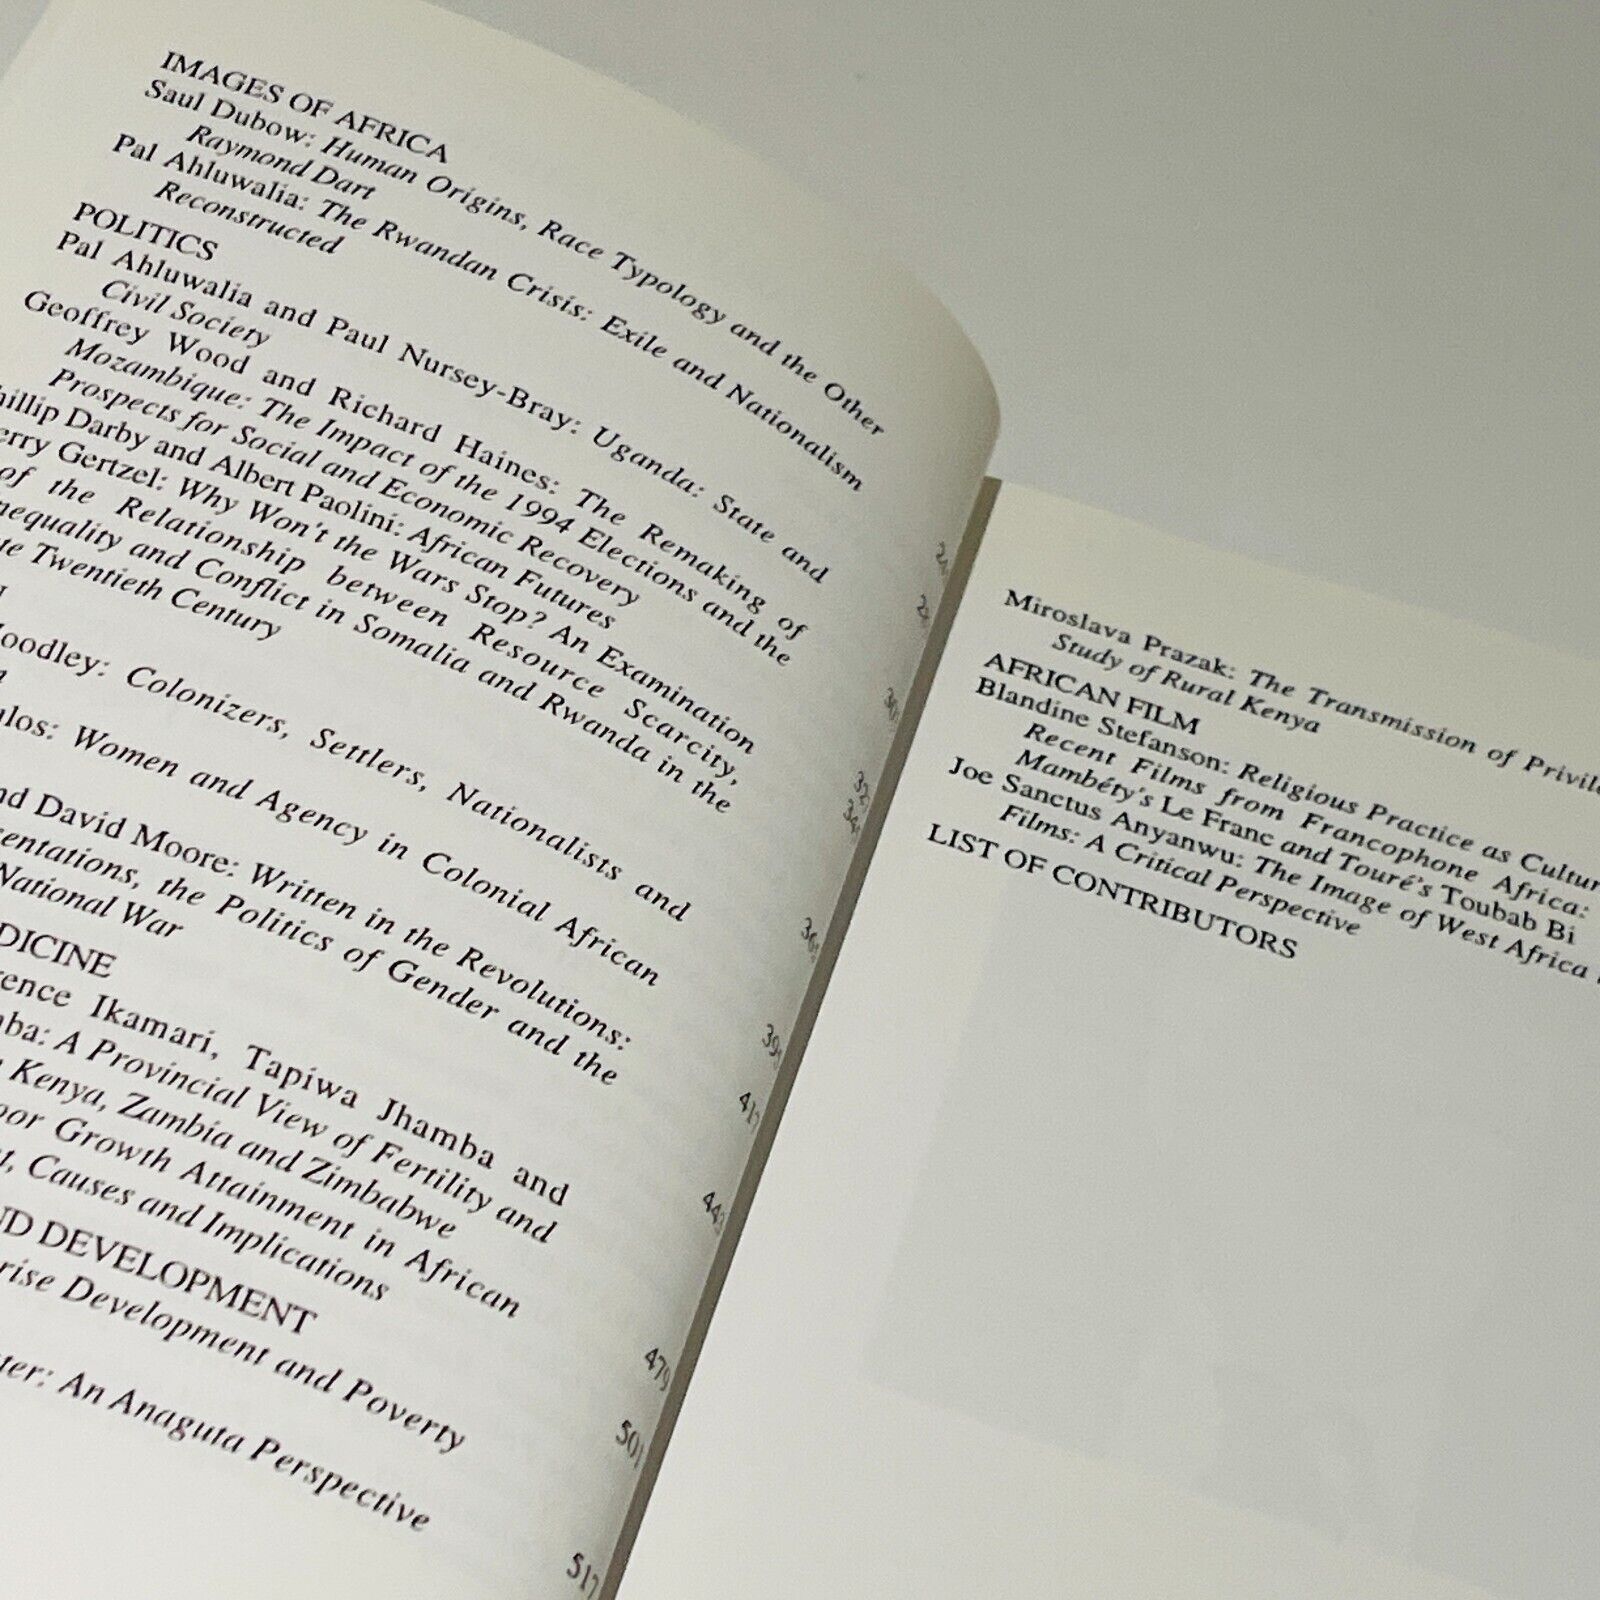 IMAGES OF AFRICA
Saul Dubow: Human Origins, Race Typology and the Other
Raymond Dart
Pal Ahluwalia: The Rwandan Crisis: Exile and Nationalism
Reconstructed
POLITICS
Pal Ahluwalia and Paul Nursey-Bray: Uganda: State and
Civil Society
Geoffrey Wood and Richard Haines: The Remaking of
Mozambique: The Impact of the 1994 Elections and the
Prospects for Social and Economic Recovery
Darby and Albert Paolini: African Futures
Gertzel: Why Won't the Wars Stop? An Examination
of the Relationship between Resource Scarcity,
and Conflict in Somalia and Rwanda in the
Twentieth Century
Colonizers, Settlers, Nationalists and
Women and Agency in Colonial African
David Moore: Written in the Revolutions:
the Politics of Gender and the
National War
Ikamari, Tapiwa Jhamba and
A Provincial View of Fertility and
Kenya, Zambia and Zimbabwe
Growth Attainment in African
Causes and Implications
DEVELOPMENT
Development and Poverty
An Anaguta Perspective
479
501
517
Miroslava Prazak: The Transmission of
Study of Rural Kenya
AFRICAN FILM
Blandine Stefanson: Religious Practice as
Recent Films from Francophone Africa:
Mambéty's Le Franc and Touré's Toubab Bi
Joe Sanctus Anyanwu: The Image of West Africa
Films: A Critical Perspective
LIST OF CONTRIBUTORS